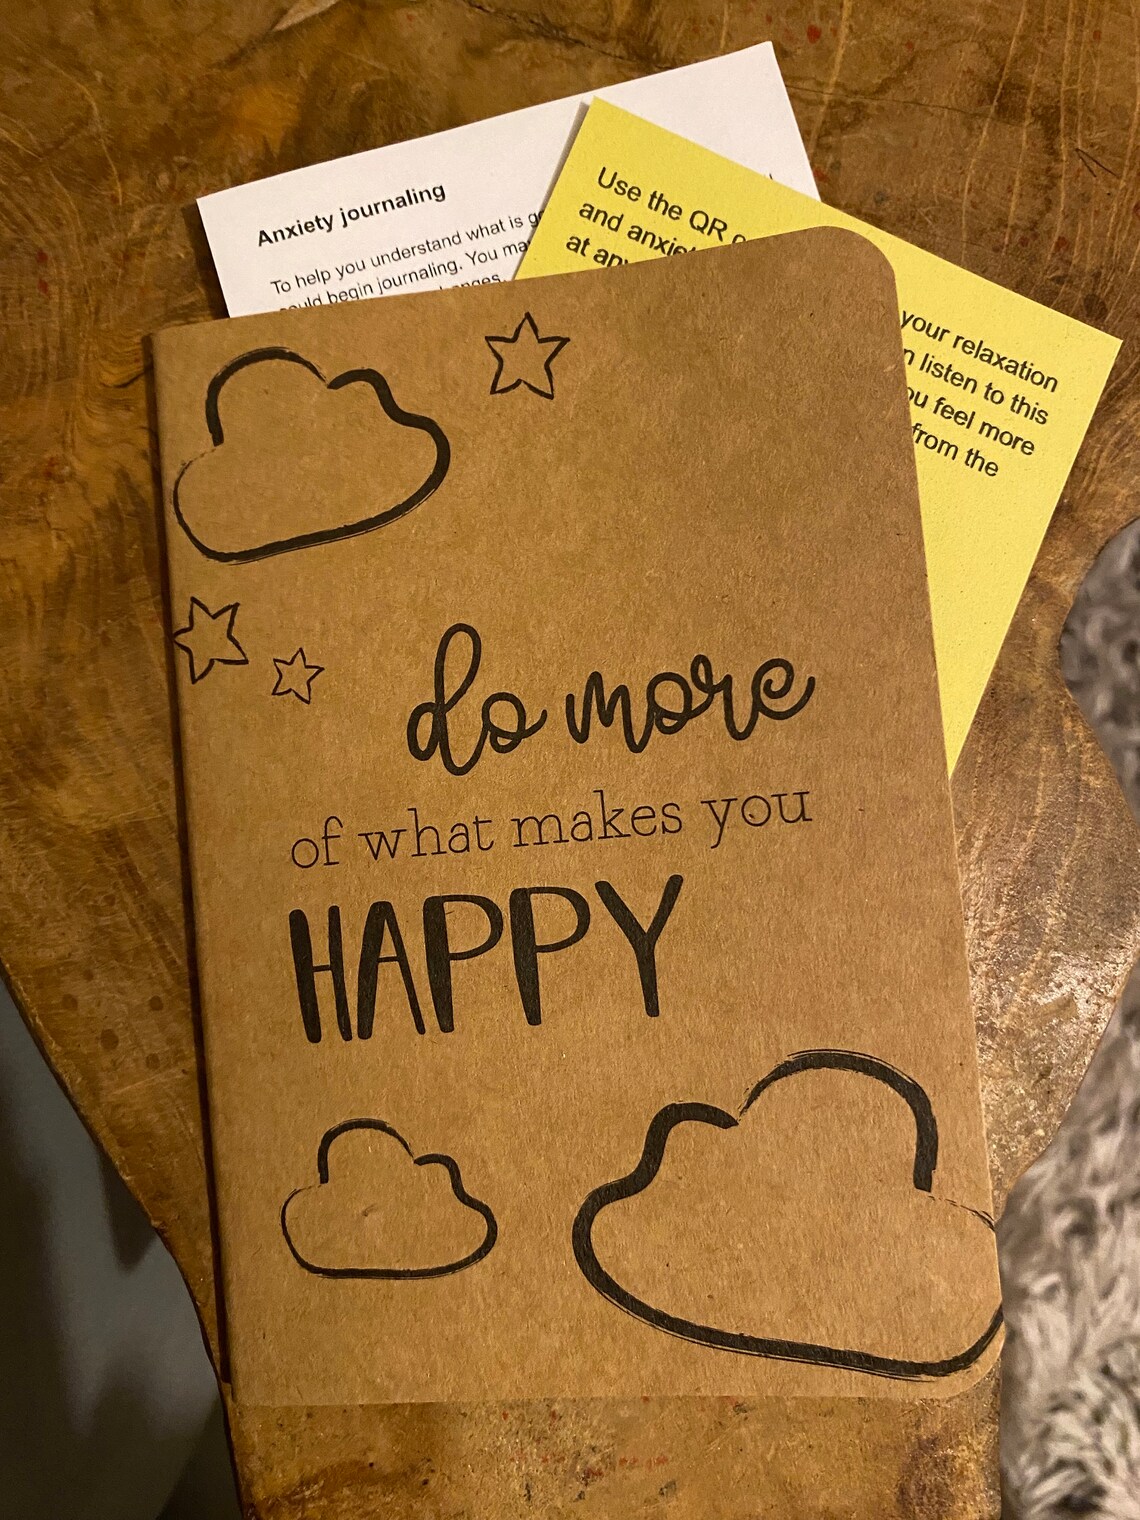 Anxiety journaling
To help you understand what is
could begin journaling. You
Use the QR
and
at
your relaxation
listen to this
feel more
from the
do more
of what makes you
HAPPY